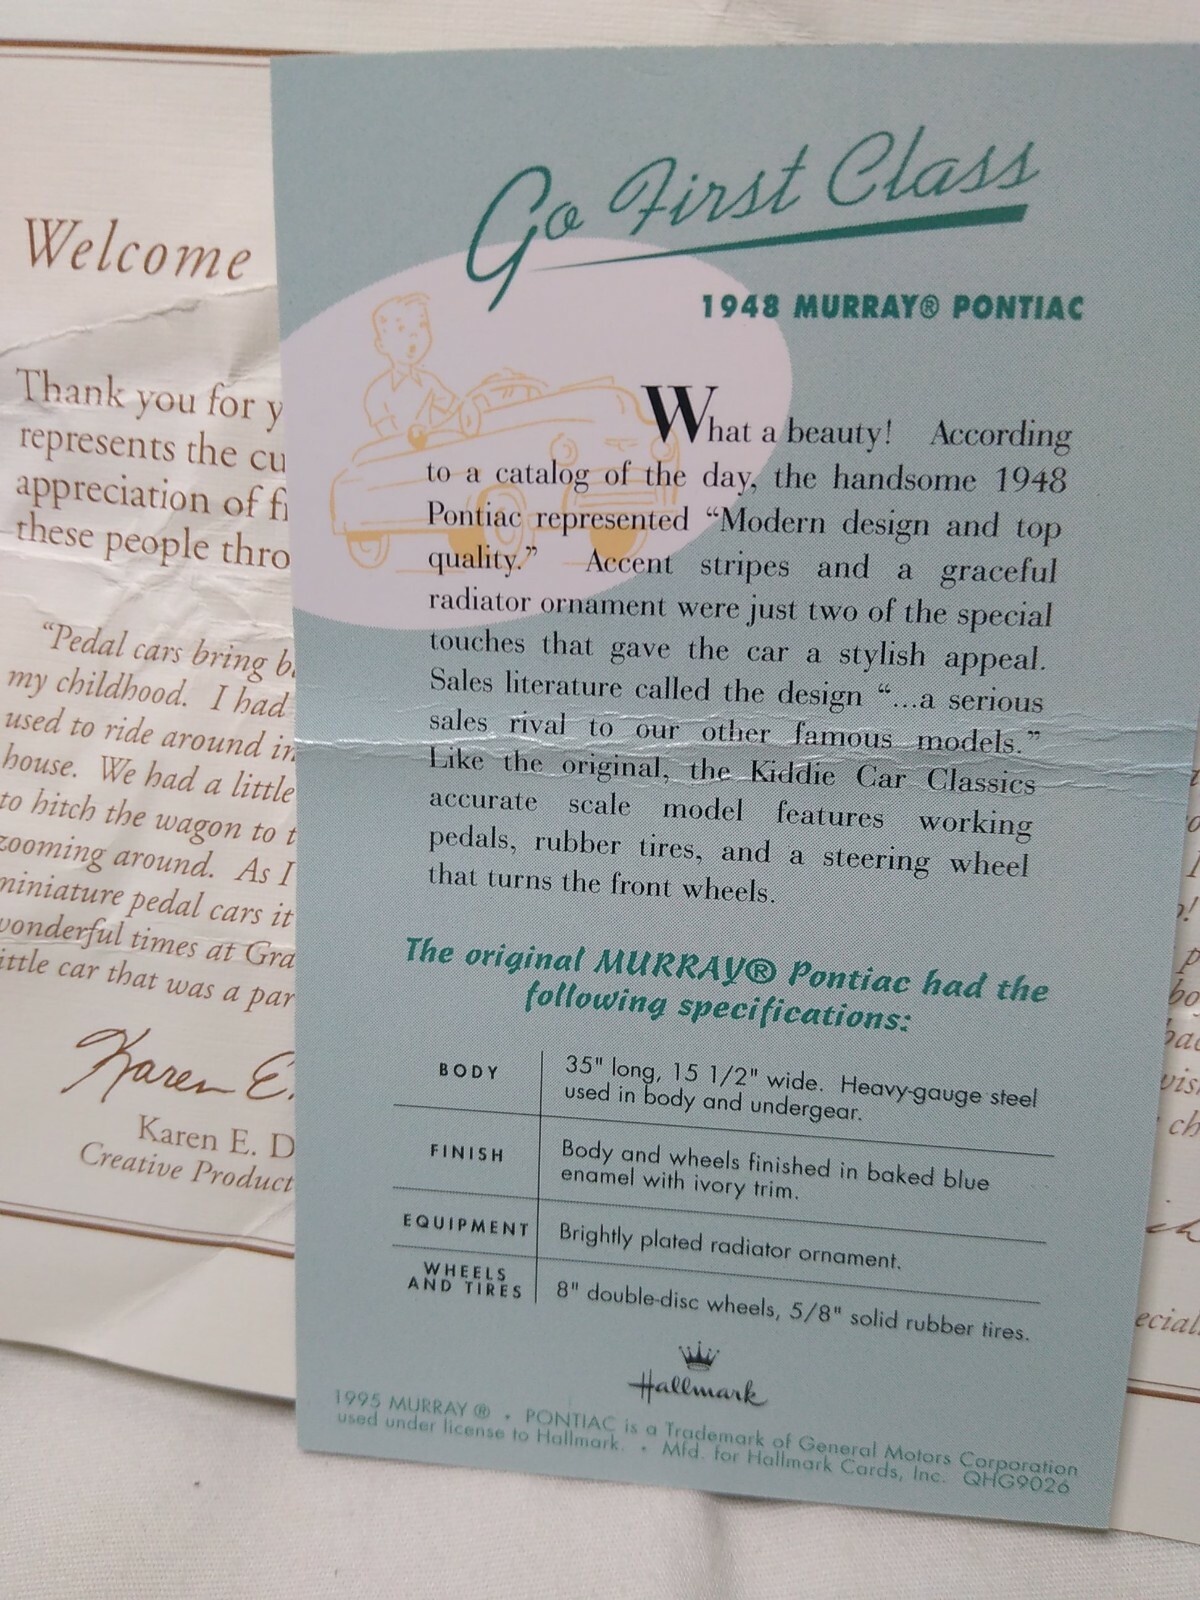 Welcome
Thank you for y
represents the cu
appreciation of fi
these people thro
“Pedal cars bring b
my childhood. I had
used to ride around in
house. We had a little
to hitch the wagon to t
zooming around. As I
miniature pedal cars it
wonderful times at Gra
ittle car that was a par
Karen E.
Karen E. D
Creative Product
Go First Class
1948 MURRAY® PONTIAC
What a beauty! According
to a catalog of the day, the handsome 1948
Pontiac represented “Modern design and top
quality.” Accent stripes and a graceful
radiator ornament were just two of the special
touches that gave the car a stylish appeal.
Sales literature called the design “...a serious
sales rival to our other famous models.”
Like the original, the Kiddie Car Classics
accurate scale model features working
pedals, rubber tires, and a steering wheel
that turns the front wheels.
The original MURRAY® Pontiac had the
following specifications:
BODY
35" long, 15 1/2" wide. Heavy-gauge steel
used in body and undergear.
FINISH
Body and wheels finished in baked blue
enamel with ivory trim.
EQUIPMENT
Brightly plated radiator ornament.
WHEELS
AND TIRES
8" double-disc wheels, 5/8" solid rubber tires.
Hallmark
1995 MURRAY ® • PONTIAC is a Trademark of General Motors Corporation
used under license to Hallmark. • Mfd. for Hallmark Cards, Inc. QHG9026